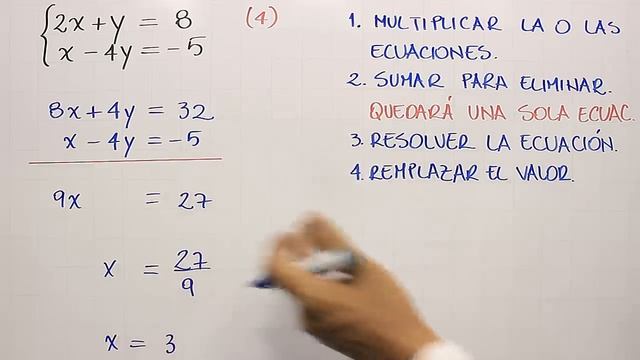 2x + y = 8 (4)
x - 4y = -5
8x + 4y = 32
x - 4y = -5
9x = 27
x = 27/9
x = 3
1. MULTIPLICAR LA O LAS
ECUACIONES.
2. SUMAR PARA ELIMINAR.
QUEDARÁ UNA SOLA ECUAC.
3. RESOLVER LA ECUACIÓN.
4. REMPLAZAR EL VALOR.